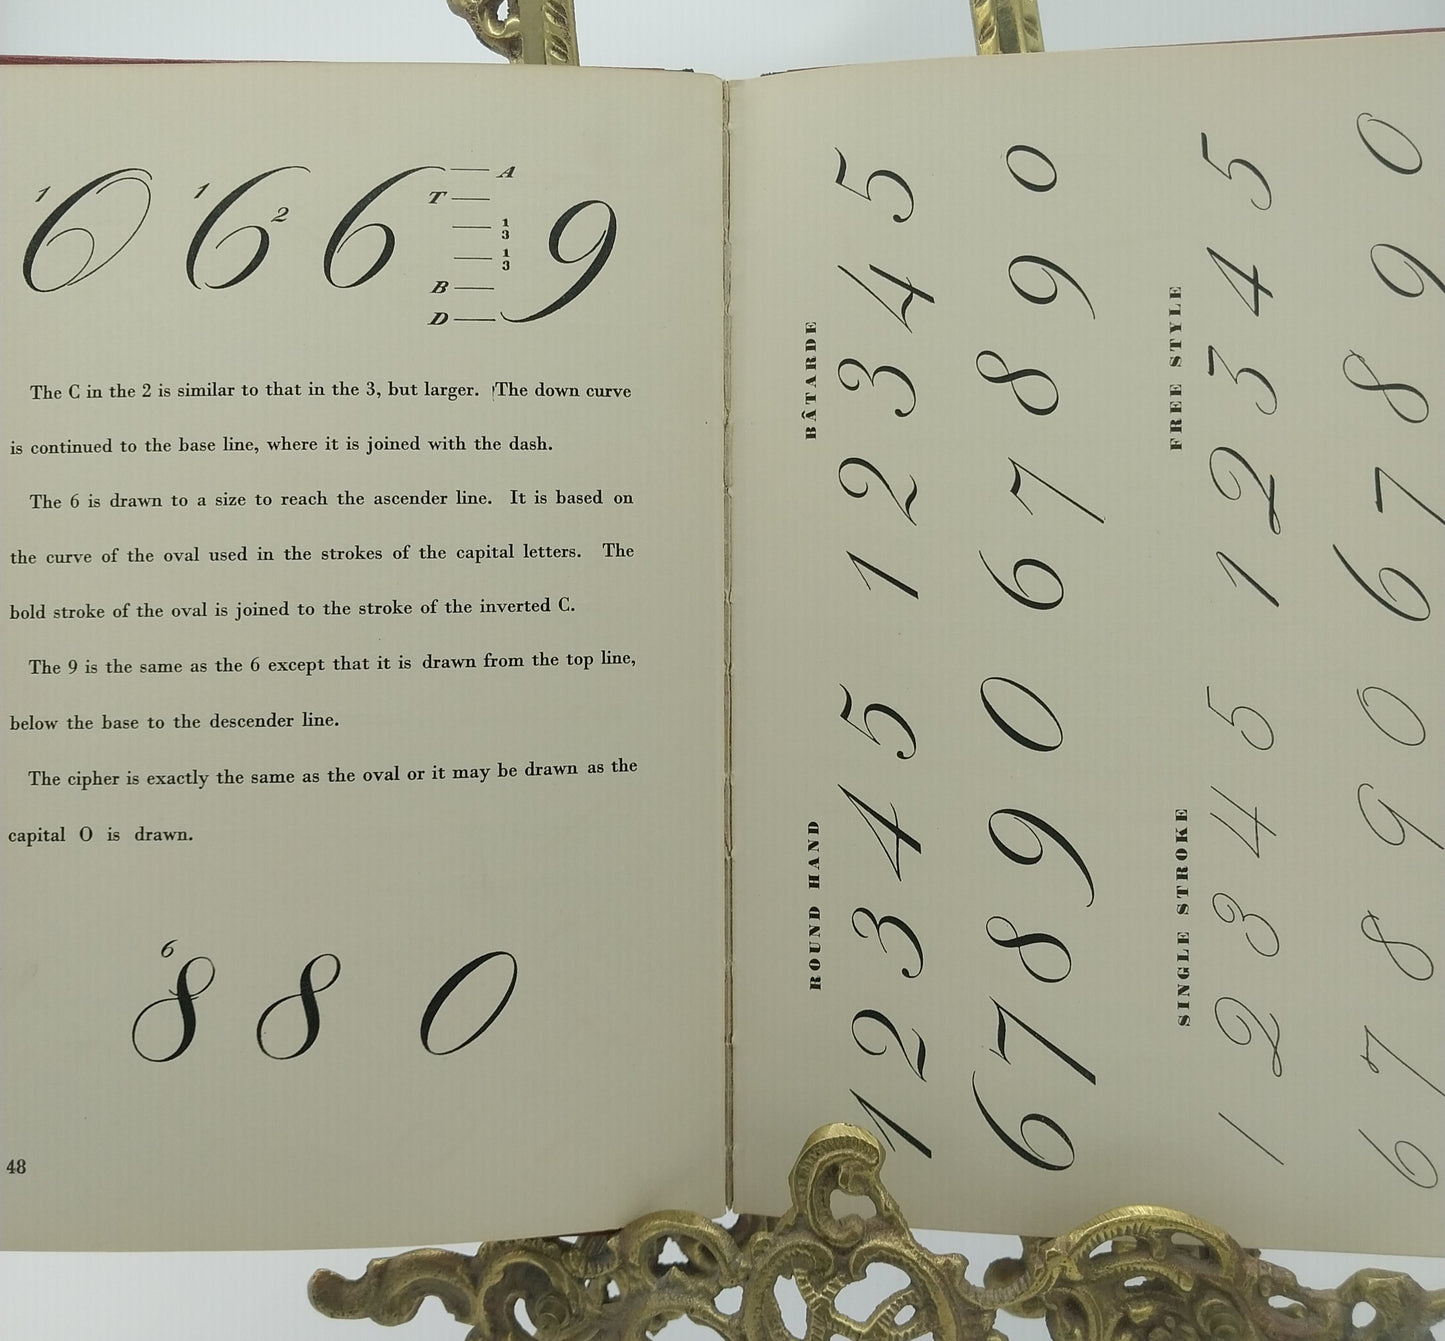 1 6 1 6 2 6 9
A
T
1/3
1/3
B
D
The C in the 2 is similar to that in the 3, but larger. The down curve
is continued to the base line, where it is joined with the dash.
The 6 is drawn to a size to reach the ascender line. It is based on
the curve of the oval used in the strokes of the capital letters. The
bold stroke of the oval is joined to the stroke of the inverted C.
The 9 is the same as the 6 except that it is drawn from the top line,
below the base to the descender line.
The cipher is exactly the same as the oval or it may be drawn as the
capital O is drawn.
6
8 8 0
48
ROUND HAND
1 2 3 4 5
6 7 8 9 0
BÂTARDE
1 2 3 4 5
6 7 8 9 0
SINGLE STROKE
1 2 3 4 5
6 7 8 9 0
FREE STYLE
1 2 3 4 5
6 7 8 9 0